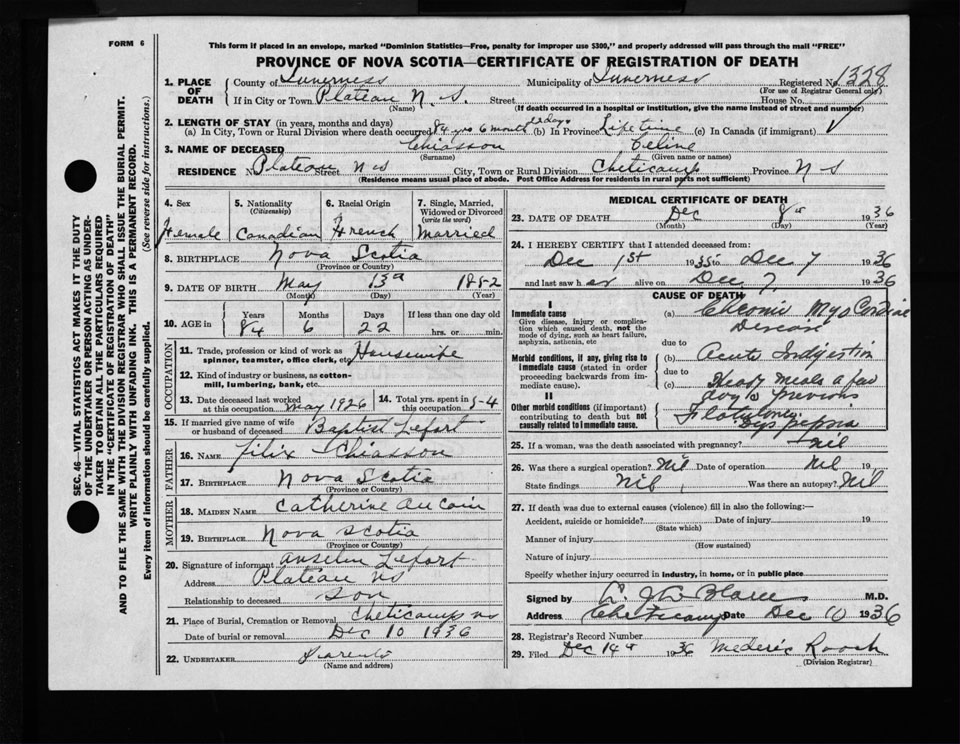 FORM 6
This form if placed in an envelope, marked "Dominion Statistics—Free, penalty for improper use $300," and properly addressed will pass through the mail "FREE"
PROVINCE OF NOVA SCOTIA—CERTIFICATE OF REGISTRATION OF DEATH
SEC. 46—VITAL STATISTICS ACT MAKES IT THE DUTY
OF THE UNDERTAKER OR PERSON ACTING AS UNDER-
TAKER TO OBTAIN ALL THE PARTICULARS REQUIRED
IN THE "CERTIFICATE OF REGISTRATION OF DEATH"
AND TO FILE THE SAME WITH THE DIVISION REGISTRAR WHO SHALL ISSUE THE BURIAL PERMIT.
WRITE PLAINLY WITH UNFADING INK. THIS IS A PERMANENT RECORD.
Every item of information should be carefully supplied. (See reverse side for instructions.)
1. PLACE OF DEATH County of Inverness Municipality of Inverness Registered No. 1328
(For use of Registrar General only)
If in City or Town Plateau N. S. Street House No.
(Name) (If death occurred in a hospital or institution, give the name instead of street and number)
2. LENGTH OF STAY (in years, months and days)
(a) In City, Town or Rural Division where death occurred 84 yrs 6 month days (b) In Province Life time (c) In Canada (if immigrant)
3. NAME OF DECEASED Chiasson Celine
(Surname) (Given name or names)
RESIDENCE N Plateau Street N S City, Town or Rural Division Cheticamp Province N S
(Residence means usual place of abode. Post Office Address for residents in rural parts not sufficient)
4. Sex 5. Nationality (Citizenship) 6. Racial Origin 7. Single, Married, Widowed or Divorced (write the word)
Female Canadian French Married
8. BIRTHPLACE Nova Scotia
(Province or Country)
9. DATE OF BIRTH May 13 1852
(Month) (Day) (Year)
10. AGE in Years Months Days If less than one day old
84 6 22 hrs. or min.
OCCUPATION
11. Trade, profession or kind of work as spinner, teamster, office clerk, etc. Housewife
12. Kind of industry or business, as cotton-mill, lumbering, bank, etc.
13. Date deceased last worked at this occupation May 1926 14. Total yrs. spent in this occupation 54
15. If married give name of wife or husband of deceased Baptist Lefort
FATHER
16. NAME Filix Chiasson
17. BIRTHPLACE Nova Scotia
(Province or Country)
MOTHER
18. MAIDEN NAME Catherine Aucoin
19. BIRTHPLACE Nova Scotia
(Province or Country)
20. Signature of informant Anselm Lefort
Address Plateau NS
Relationship to deceased Son
21. Place of Burial, Cremation or Removal Cheticamp NS
Date of burial or removal Dec 10 1936
22. UNDERTAKER
(Name and address)
MEDICAL CERTIFICATE OF DEATH
23. DATE OF DEATH Dec 8 1936
(Month) (Day) (Year)
24. I HEREBY CERTIFY that I attended deceased from:
Dec 1st 1935 to Dec 7 1936
and last saw her alive on Dec 7, 1936
CAUSE OF DEATH
I
Immediate cause
Give disease, injury or complication which caused death, not the mode of dying, such as heart failure, asphyxia, asthenia, etc
(a) Chronic Myo Cardiac
Disease
due to
Morbid conditions, if any, giving rise to immediate cause (stated in order proceeding backwards from immediate cause).
(b) Acute Indigestion
due to
(c) Heavy meals a few
days previous
II
Other morbid conditions (if important) contributing to death but not causally related to immediate cause.
Dyspepsia
25. If a woman, was the death associated with pregnancy? nil
26. Was there a surgical operation? Nil Date of operation Nil 19
State findings Nil Was there an autopsy? Nil
27. If death was due to external causes (violence) fill in also the following:—
Accident, suicide or homicide? Date of injury 19
(State which)
Manner of injury
(How sustained)
Nature of injury
Specify whether injury occurred in industry, in home, or in public place
Signed by M.D.
Address Cheticamp Date Dec 10 1936
28. Registrar's Record Number
29. Filed Dec 14 1936 Mederic Roach
(Division Registrar)